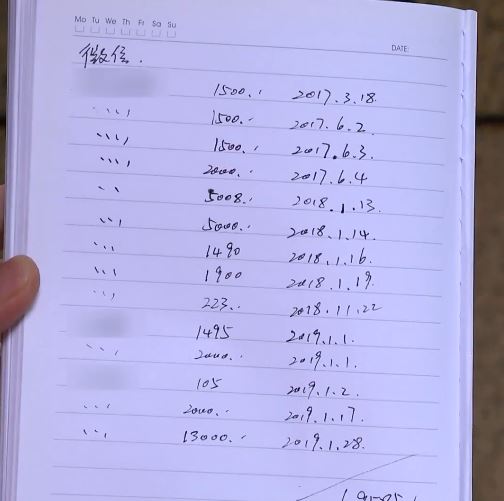 Mo Tu We Th Fr Sa Su
DATE:
微信.
1500. 2017.3.18.
1500. 2017.6.2.
1500. 2017.6.3.
2000. 2017.6.4
5008. 2018.1.13.
5000. 2018.1.14.
1490 2018.1.16.
1900 2018.1.19.
223. 2018.11.22
1495 2019.1.1.
2000. 2019.1.1.
105 2019.1.2.
2000. 2019.1.17.
13000. 2019.1.28.